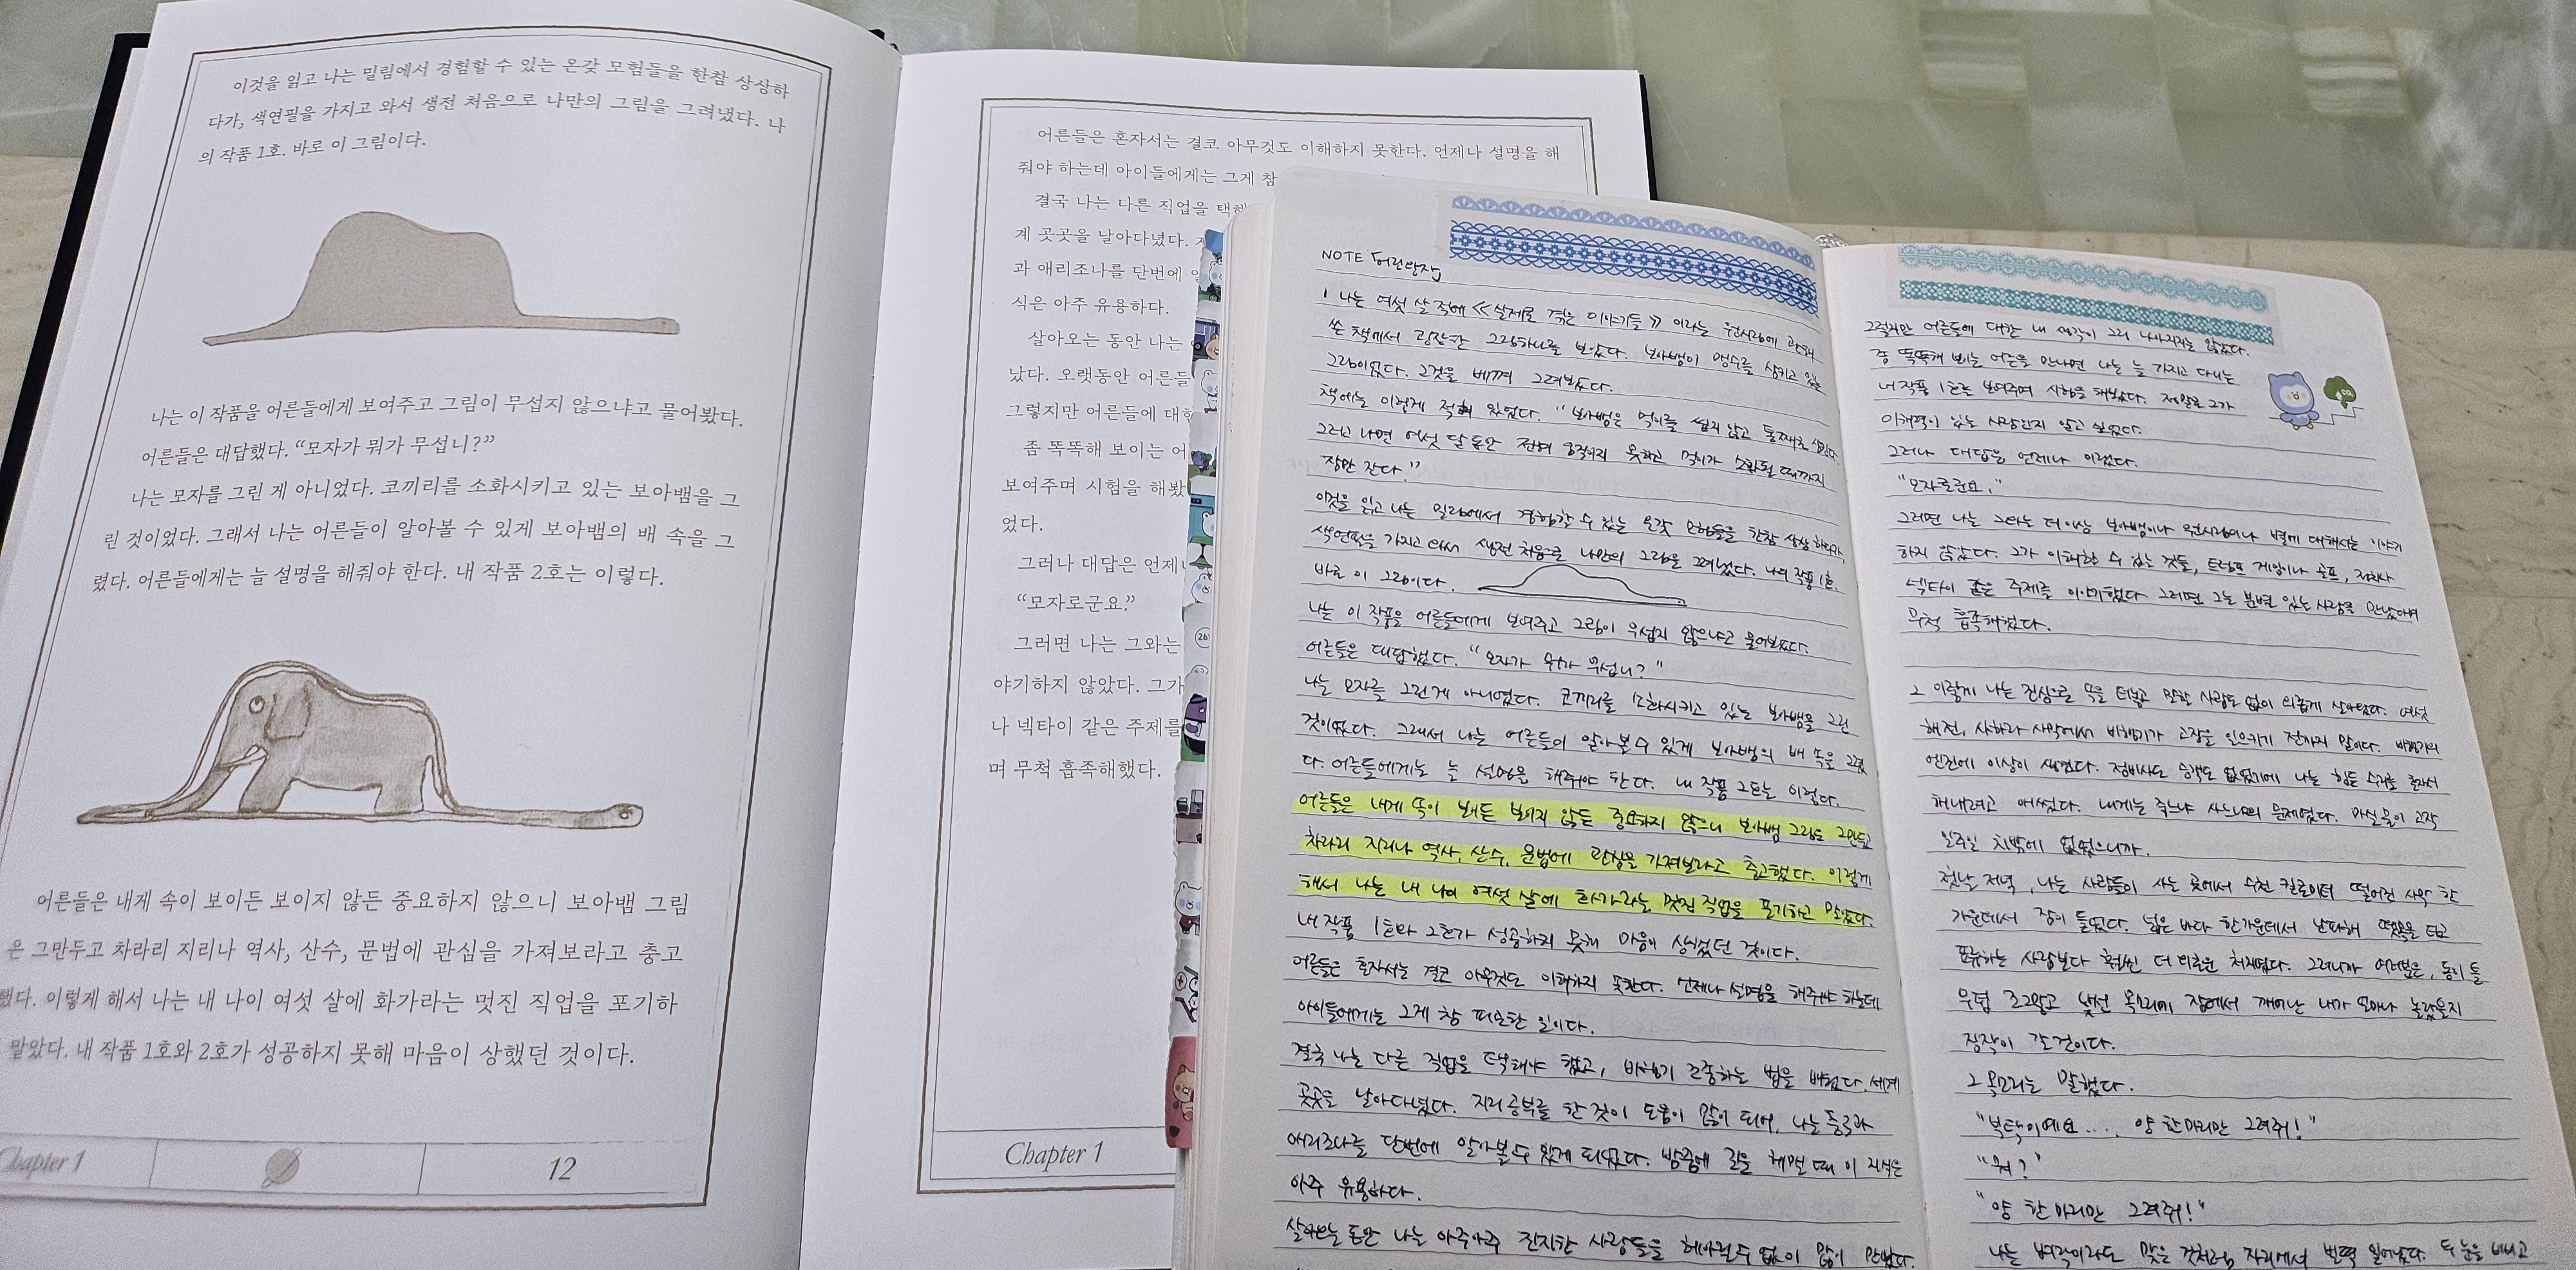 이것을 읽고 나는 밀림에서 경험할 수 있는 온갖 모험들을 한참 상상하
다가, 색연필을 가지고 와서 생전 처음으로 나만의 그림을 그려냈다. 나
의 작품 1호. 바로 이 그림이다.
나는 이 작품을 어른들에게 보여주고 그림이 무섭지 않으냐고 물어봤다.
어른들은 대답했다. “모자가 뭐가 무섭니?”
나는 모자를 그린 게 아니었다. 코끼리를 소화시키고 있는 보아뱀을 그
린 것이었다. 그래서 나는 어른들이 알아볼 수 있게 보아뱀의 배 속을 그
렸다. 어른들에게는 늘 설명을 해줘야 한다. 내 작품 2호는 이렇다.
어른들은 내게 속이 보이든 보이지 않든 중요하지 않으니 보아뱀 그림
은 그만두고 차라리 지리나 역사, 산수, 문법에 관심을 가져보라고 충고
했다. 이렇게 해서 나는 내 나이 여섯 살에 화가라는 멋진 직업을 포기하
말았다. 내 작품 1호와 2호가 성공하지 못해 마음이 상했던 것이다.
Chapter 1
12
어른들은 혼자서는 결코 아무것도 이해하지 못한다. 언제나 설명을 해
줘야 하는데 아이들에게는 그게 참
결국 나는 다른 직업을 택해
계 곳곳을 날아다녔다.
과 애리조나를 단번에
식은 아주 유용하다.
살아오는 동안 나는
났다. 오랫동안 어른들
그렇지만 어른들에 대한
좀 똑똑해 보이는 어
보여주며 시험을 해봤
었다.
그러나 대답은 언제나
“모자로군요.”
그러면 나는 그와는
야기하지 않았다. 그가
나 넥타이 같은 주제를
며 무척 흡족해했다.
Chapter 1
NOTE 「어린왕자」
1 나는 여섯 살 적에 《실제로 겪는 이야기들》 이라는 원시림에 관해
쓴 책에서 굉장한 그림하나를 보았다. 보아뱀이 맹수를 삼키고 있는
그림이었다. 그것을 베껴 그려보았다.
책에는 이렇게 적혀 있었다. "보아뱀은 먹이를 씹지 않고 통째로 삼킨다.
그러고 나면 여섯 달 동안 전혀 움직이지 못하고 먹이가 소화될 때까지
잠만 잔다."
이것을 읽고 나는 밀림에서 경험할 수 있는 온갖 모험들을 한참 상상 하다가,
색연필을 가지고 와서 생전 처음으로 나만의 그림을 그려냈다. 나의 작품 1호.
바로 이 그림이다.
나는 이 작품을 어른들에게 보여주고 그림이 무섭지 않으냐고 물어보았다.
어른들은 대답했다. "모자가 뭐가 무섭니?"
나는 모자를 그린게 아니였다. 코끼리를 소화시키고 있는 보아뱀을 그린
것이였다. 그래서 나는 어른들이 알아볼수 있게 보아뱀의 배 속을 그렸
다. 어른들에게는 늘 설명을 해줘야 한다. 내 작품 2호는 이렇다.
어른들은 내게 속이 보이든 보이지 않든 중요하지 않으니 보아뱀 그림은 그만두고
차라리 지리나 역사, 산수, 문법에 관심을 가져보라고 충고했다. 이렇게
해서 나는 내 나이 여섯 살에 화가라는 멋진 직업을 포기하고 말았다.
내 작품 1호와 2호가 성공하지 못해 마음이 상했던 것이다.
어른들은 혼자서는 결코 아무것도 이해하지 못한다. 언제나 설명을 해주어야 하는데
아이들에게는 그게 참 피곤한 일이다.
결국 나는 다른 직업을 택해야 했고, 비행기 조종하는 법을 배웠다. 세계
곳곳을 날아다녔다. 지리 공부를 한 것이 도움이 많이 되어, 나는 중국과
애리조나를 단번에 알아볼수 있게 되었다. 밤중에 길을 헤맬 때 이 지식은
아주 유용하다.
살아오는 동안 나는 아주아주 진지한 사람들을 헤아릴수 없이 많이 만났다.
그렇지만 어른들에 대한 내 생각이 그리 나아지지는 않았다.
좀 똑똑해 보이는 어른을 만나면 나는 늘 가지고 다니는
내 작품 1호를 보여주며 시험을 해보았다. 정말로 그가
이해력이 있는 사람인지 알고 싶었다.
그러나 대답은 언제나 이랬다.
"모자로군요."
그러면 나는 그와는 더이상 보아뱀이나 원시림이나 별에 대해서는 이야기
하지 않았다. 그가 이해할 수 있는 것들, 트럼프 게임이나 골프, 정치나
넥타이 같은 주제를 이야기했다 그러면 그는 분별 있는 사람을 만났다며
무척 흡족해했다.
2 이렇게 나는 진심으로 속을 터놓고 말할 사람도 없이 외롭게 살아왔다. 여섯
해전, 사하라 사막에서 비행기가 고장을 일으키기 전까지 말이다. 비행기의
엔진에 이상이 생겼다. 정비사도 승객도 없었기에 나는 힘든 수리를 혼자서
해내려고 애썼다. 내게는 죽느냐 사느냐의 문제였다. 마실물이 고작
일주일 치밖에 없었으니까.
첫날 저녁, 나는 사람들이 사는 곳에서 수천 킬로미터 떨어진 사막 한
가운데서 잠이 들었다. 넓은 바다 한가운데서 난파해 뗏목을 타고
표류하는 사람보다 훨씬 더 외로운 처지였다. 그러니까 여러분은, 동이 틀
무렵 조그맣고 낯선 목소리에 잠에서 깨어난 내가 얼마나 놀랐을지
짐작이 갈 것이다.
그 목소리는 말했다.
"부탁이에요.... 양 한마리만 그려줘!"
"뭐?"
"양 한마리만 그려줘!"
나는 벼락이라도 맞은 것처럼 자리에서 벌떡 일어났다. 두 눈을 비비고